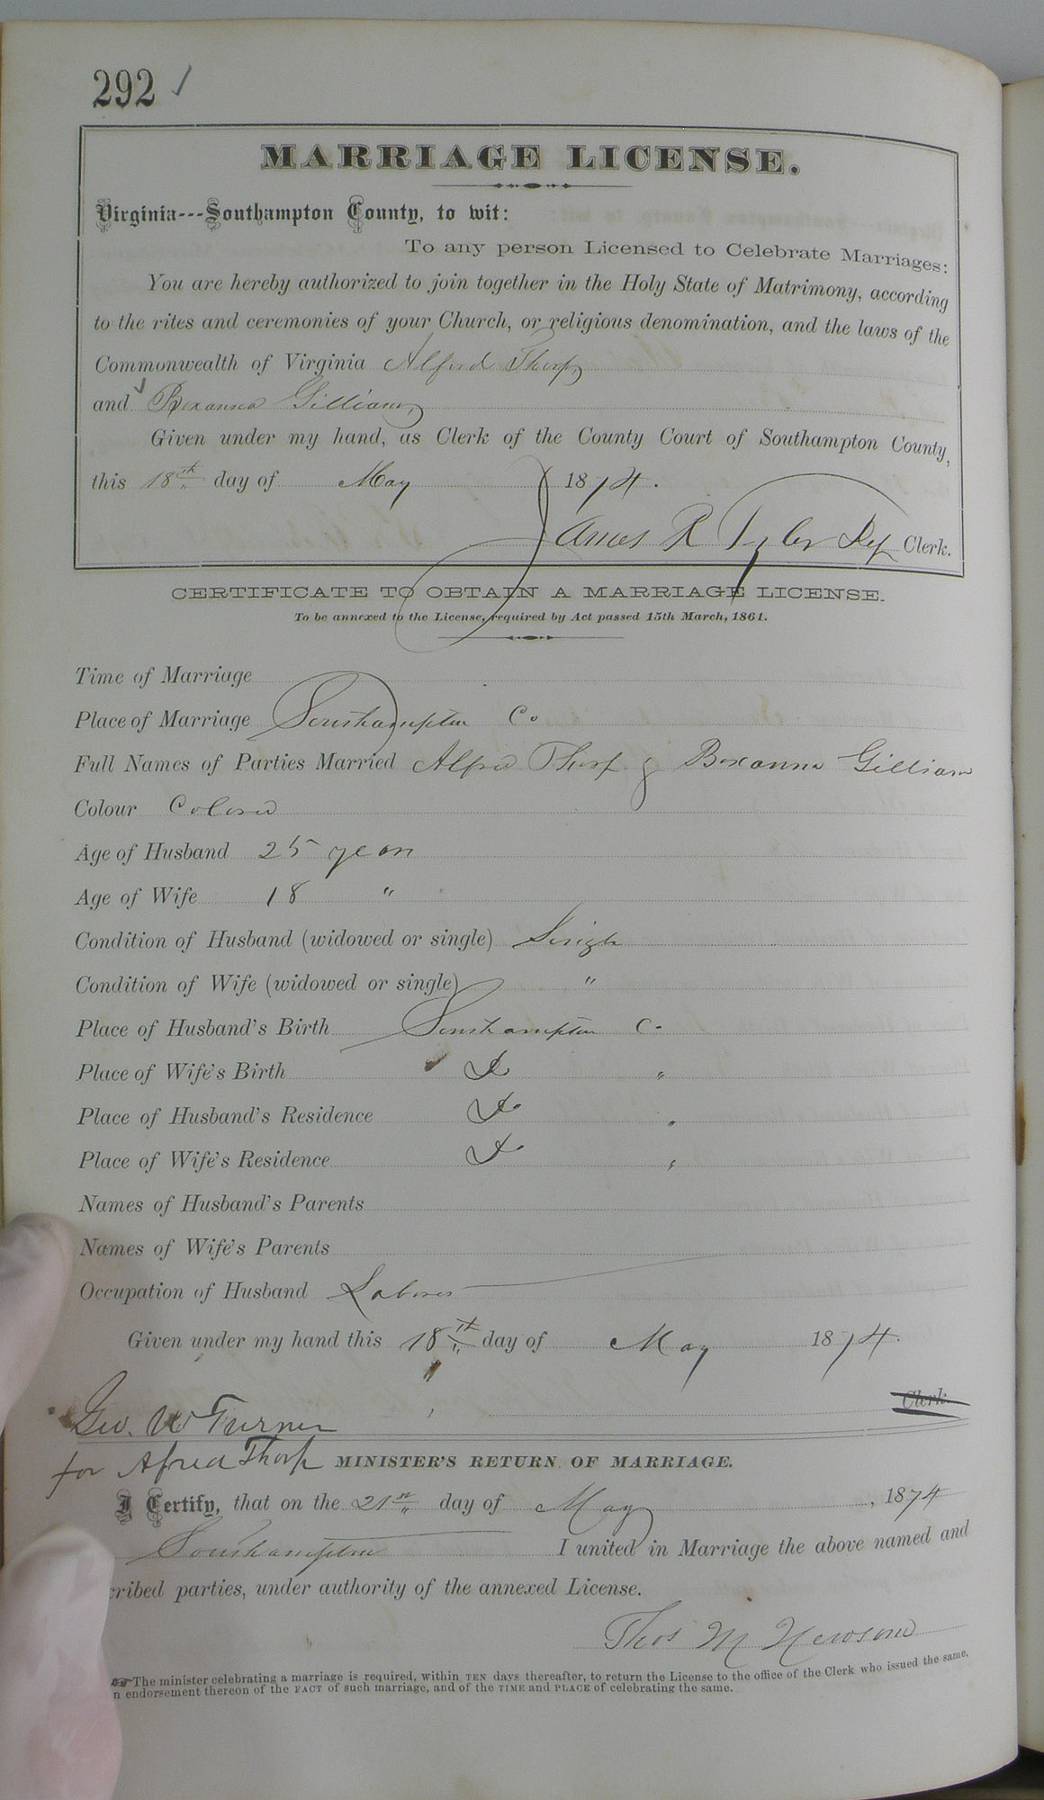 292 ✓
MARRIAGE LICENSE.
Virginia---Southampton County, to wit:
To any person Licensed to Celebrate Marriages:
You are hereby authorized to join together in the Holy State of Matrimony, according
to the rites and ceremonies of your Church, or religious denomination, and the laws of the
Commonwealth of Virginia Alfred Thorp
and Roxanna Gilliam
Given under my hand, as Clerk of the County Court of Southampton County,
this 18th day of May 1874.
James R Tyler Dep Clerk.
CERTIFICATE TO OBTAIN A MARRIAGE LICENSE.
To be annexed to the License, required by Act passed 15th March, 1861.
Time of Marriage
Place of Marriage Southampton Co
Full Names of Parties Married Alfred Thorp & Roxanna Gilliam
Colour Colored
Age of Husband 25 years
Age of Wife 18 "
Condition of Husband (widowed or single) Single
Condition of Wife (widowed or single) "
Place of Husband's Birth Southampton Co
Place of Wife's Birth Do "
Place of Husband's Residence Do "
Place of Wife's Residence Do "
Names of Husband's Parents
Names of Wife's Parents
Occupation of Husband Laborer
Given under my hand this 18th day of May 1874.
Clerk
Geo. W Turner
for Alfred Thorp MINISTER'S RETURN OF MARRIAGE.
I Certify, that on the 21st day of May, 1874
Southampton I united in Marriage the above named and
cribed parties, under authority of the annexed License.
Thos M Newsom
The minister celebrating a marriage is required, within TEN days thereafter, to return the License to the office of the Clerk who issued the same,
n endorsement thereon of the FACT of such marriage, and of the TIME and PLACE of celebrating the same.